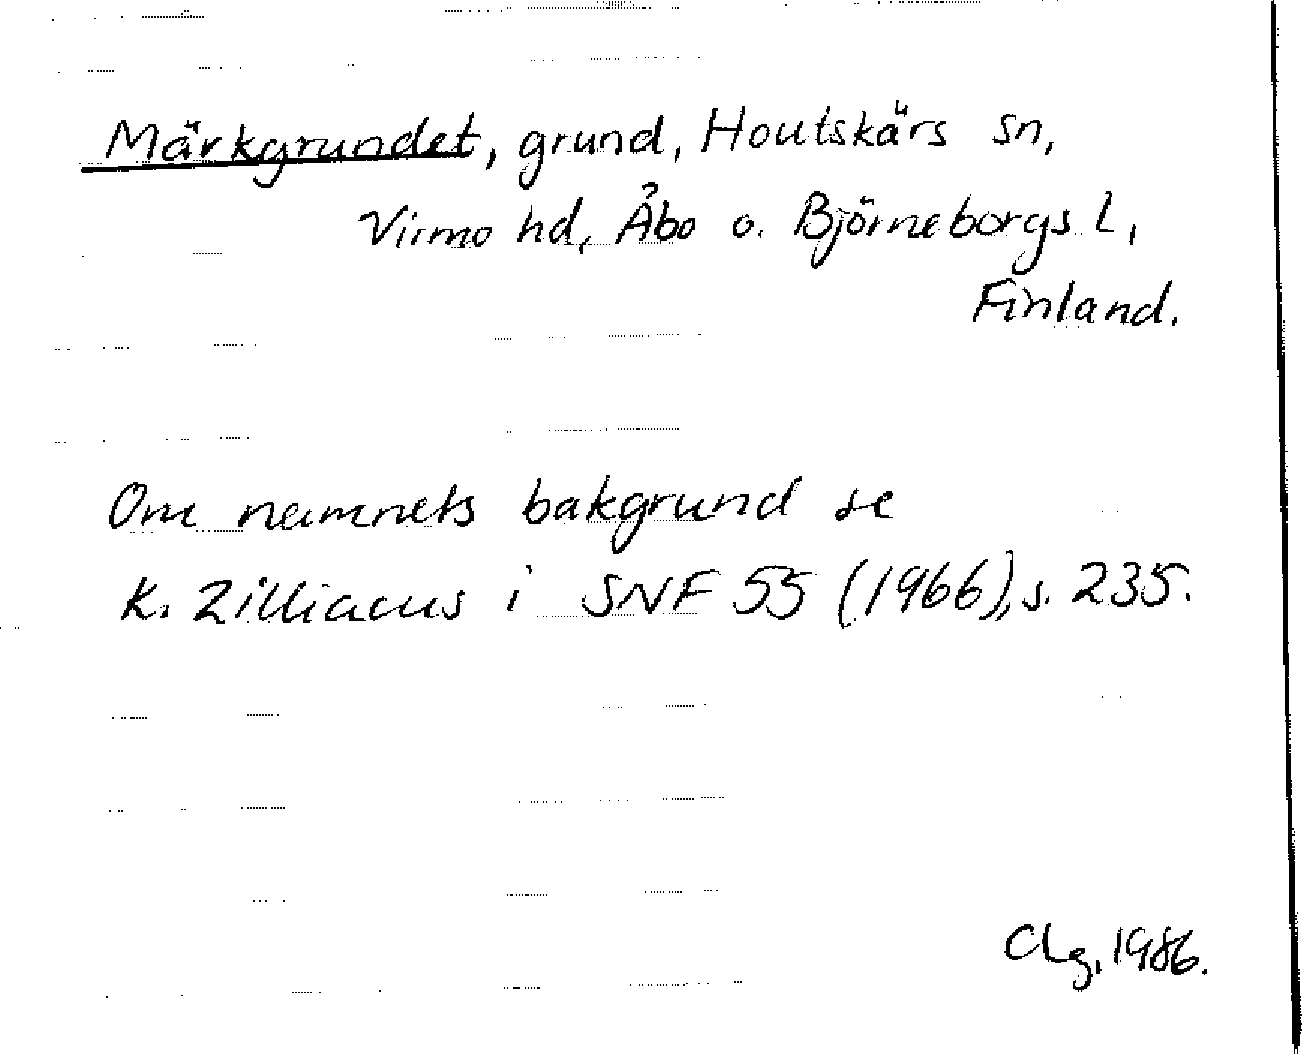 Märkgrundet, grund, Houtskärs sn,
Virmo hd, Åbo o. Björneborgs l,
Finland.
Om namnets bakgrund se
K. Zilliacus i SNF 55 (1966), s. 235.
Clg, 1986.